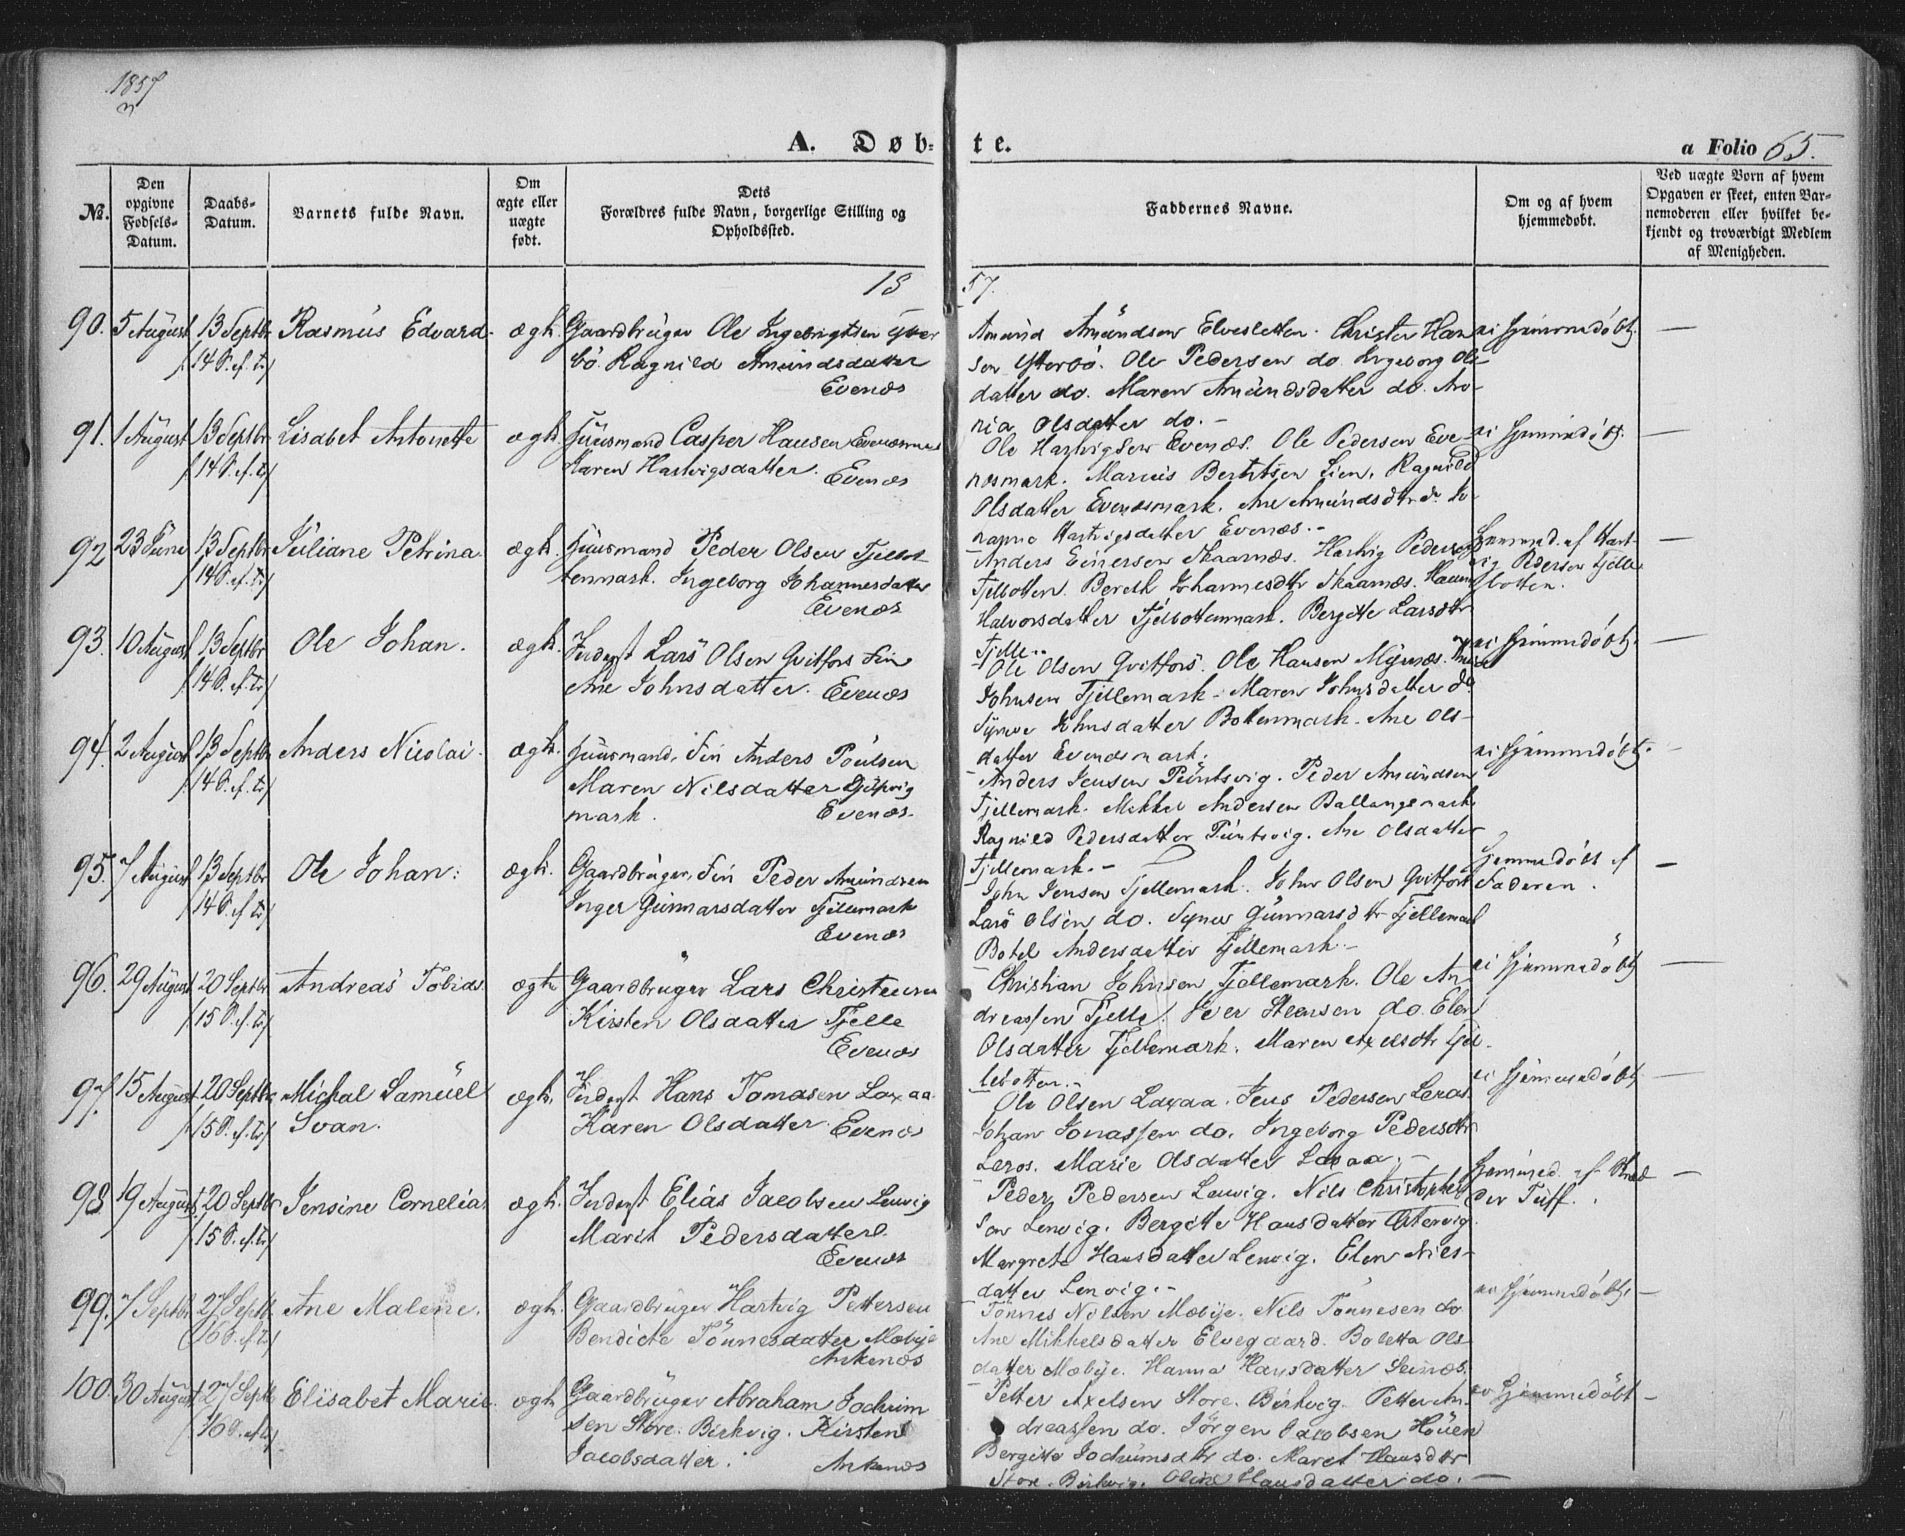 1857
A. Døb-
te.
a Folio 65.
No.
Den opgivne Fødsels-Datum.
Daabs-Datum.
Barnets fulde Navn.
Om ægte eller uægte født.
Dets Forældres fulde Navn, borgerlige Stilling og Opholdssted.
Faddernes Navne.
Om og af hvem hjemmedøbt.
Ved uægte Born af hvem Opgaven er skeet, enten Barnemoderen eller hvilket bekjendt og troværdigt Medlem af Menigheden.
18
57.
90. 5 August 13 Septbr Rasmus Edvard. ægh. Gaardbruger Ole Ingebrigtsen
/14 S. ef. tr/ bö. Ragnild Amundsdatter
Evenæs
Amund Amundsen Elvesletten. Christen Han
sen Ytterbö. Ole Pedersen do. Ingeborg Ols
datter do. Maren Amundsdatter do. Ma-
ria Olsdatter do. -
ei hjemmedöbt. —
91. 1 August 13 Septbr Lisabet Antonette ægh. Huusmand Casper Hansen Evenæsmark
/14 S. ef. tr/ Karen Hartvigsdatter. Evenæs
Ole Hartvigsen Evenæs. Ole Pedersen Eve-
næsmark. Marius Berntsen Lien. Ragnild
Olsdatter Evenæsmark. Ane Amundsdtr do
Hartvigsdatter Evenæs. -
ei hjemmedöbt. —
92 23 Juni 13 Septbr Juliane Petrina. ægh. Huusmand Peder Olsen Fjelbot
/14 S. ef. tr/ tenmark. Ingeborg Johannesdatter
Evenæs
Anders Einersen Skaarnæs. Hartvig Pedersen
Fjelbotten. Bereth Johannesdtr Skaarnæs.
Halvorsdatter Fjelbottenmark. Bergitte Larsdtr
Fjelle..
Hjemmed. af Hart-
vig Pedersen Fjelle
botten.
—
93. 10 August 13 Septbr Ole Johan. ægh. Inderst Lars Olsen Qvitfors Fin
/14 S. ef. tr/ Ane Johnsdatter. Evenæs
Ole Olsen Qvitfors. Ole Hansen Myrnæs.
Johnsen Fjellemark. Maren Johnsdatter do
Synve Johnsdatter Bottenmark. Ane Ols-
datter Evenæsmark.
ei hjemmedöbt. —
94. 2 August 13 Septbr Anders Nicolai. ægh. Huusmand, Fin Anders Poulsen
/14 S. ef. tr/ Maren Nilsdatter
mark. Evenæs.
Anders Jensen Puntsvig. Peder Amundsen
Fjellemark. Mikkel Andersen Ballangsmark
Ragnild Pedersdatter Puntsvig. Ane Olsdatter
Fjellemark. -
ei hjemmedöbt. —
95. 7 August 13 Septbr Ole Johan. ægh. Gaardbruger, Fin Peder Amundsen
/14 S. ef. tr/ Inger Gunnarsdatter Fjellemark
Evenæs
John Jensen Fjellemark. John Olsen Qvitfors
Lars Olsen do. Synve Gunnarsdtr Fjellemark
Botel Andersdatter Fjellemark. -
hjemmedöbt af
Faderen.
—
96. 29 August 20 Septbr Andreas Tobias. ægh Gaardbruger Lars Christensen
/15 S. ef. tr/ Kirsten Olsdatter Fjelle
Evenæs
Christian Johnsen Fjellemark. Ole An
dreassen Fjelle. Peder Steensen do. Elen
Olsdatter Fjellemark. Maren Axelsdtr Fjel
lebotten. -
ei hjemmedöbt —
97. 15 August 20 Septbr Michal Samuel ægh. Inderst Hans Tomasen Laxaa.
/15 S. ef. tr/ Svan. Karen Olsdatter Evenæs
Ole Olsen Laxaa. Jens Pedersen Leros.
Johan Jonassen do. Ingeborg Pedersdtr
Leros. Marie Olsdatter Laxaa. -
ei hjemmedöbt —
98 19 August. 20 Septbr Jensine Cornelia ægh. Inderst Elias Jacobsen Lenvig
/15 S. ef. tr/ Marit Pedersdatter.
Evenæs
Peder Pedersen Lenvig. Nils Christopher
sen Lenvig. Bergitte Hansdatter Østervig
Margrete Hansdatter Lenvig. Elen Niels-
datter Lenvig. -
hjemmed. af
der Tuff.
—
99. 7 Septbr 27 Septbr Ane Malene. ægh. Gaardbruger Hartvig Pettersen
/16 S. ef. tr/ Bendicte Tönnesdatter Mæbye
Ankenæs
Tönnes Nilsen Mæbye. Nils Tönnesen do
Ane Mikkelsdatter Elvegaard. Boletta Ols-
datter Mæbye. Hanna Hansdatter
ei hjemmedöbt. —
100. 30 August 27 Septbr Elisabet Marie. ægh Gaardbruger Abraham Jochum
/16 S. ef. tr/ sen Store. Birkvig. Kirsten
Jacobsdatter. Ankenæs
Petter Axelsen Store. Birkvig. Petter An-
dreassen do. Jörgen Jacobsen
Bergitte Jochumsdtr do. Maret Hansdtr
Store. Birkvig. Oline Hansdatter do. —
ei hjemmedöbt —